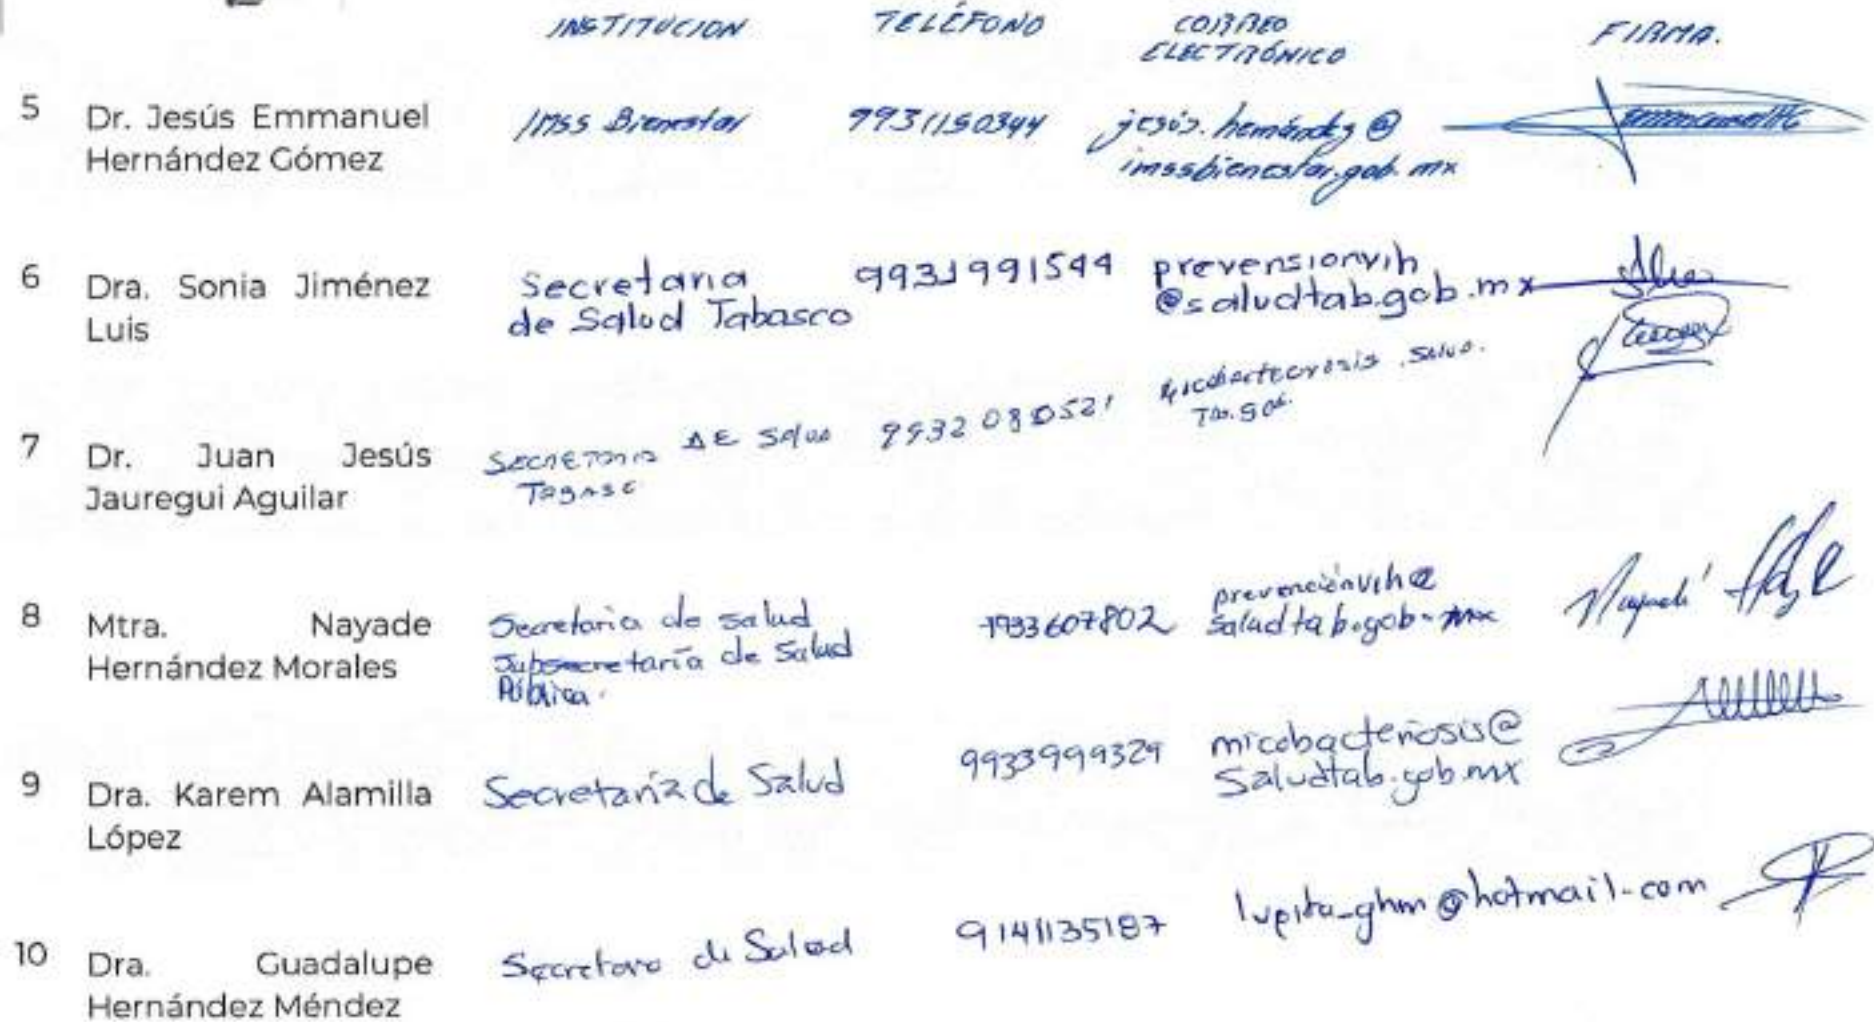 INSTITUCION TELÉFONO CORREO ELECTRÓNICO FIRMA.
5 Dr. Jesús Emmanuel
Hernández Gómez
IMSS Bienestar 9931150344 jesús.hernández@
imssbienestar.gob.mx
6 Dra. Sonia Jiménez
Luis
Secretaria
de Salud Tabasco
9931991544
prevensionvih
@saludtab.gob.mx
7 Dr. Juan Jesús
Jauregui Aguilar
Secretaria DE Salud
9932080521
8 Mtra. Nayade
Hernández Morales
Secretaria de salud
Subsecretaría de Salud
Pública.
9933607802
prevenciónvih@
saludtab.gob.mx
9 Dra. Karem Alamilla
López
Secretaría de Salud
9933999329
micobacteriosis@
Saludtab.gob.mx
10 Dra. Guadalupe
Hernández Méndez
de Salud
9141135187
lupita_ghm@hotmail.com